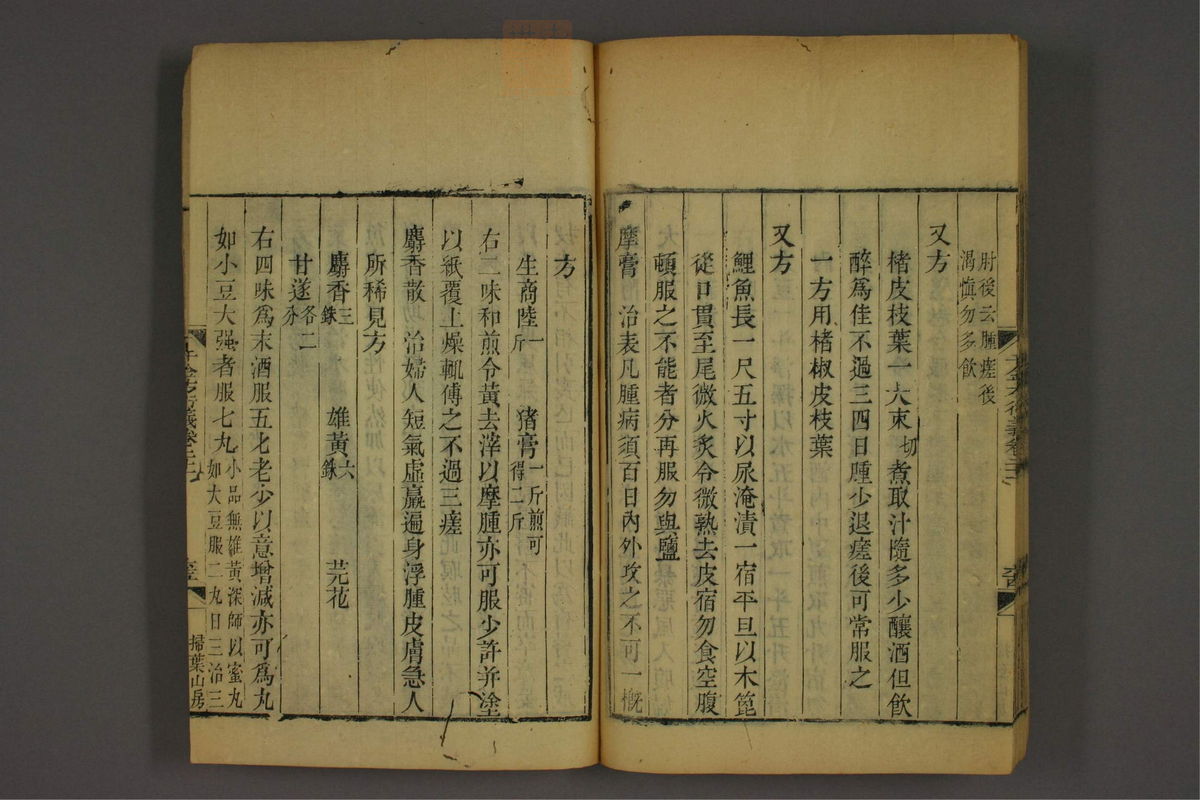 肘後云腫瘥後
渴慎勿多飲
又方
楮皮枝葉一大束切煮取汁隨多少釀酒但飲
醉爲佳不過三四日腫少退瘥後可常服之
一方用楮椒皮枝葉
又方
鯉魚長一尺五寸以尿淹漬一宿平旦以木篦
從口貫至尾微火炙令微熟去皮宿勿食空腹
頓服之不能者分再服勿與鹽
摩膏　治表凡腫病須百日內外攻之不可一概
方
生商陸一斤　豬膏一斤煎可得二斤
右二味和煎令黃去滓以摩腫亦可服少許并塗
以紙覆上燥輒傅之不過三瘥
麝香散　治婦人短氣虛羸遍身浮腫皮膚急人
所稀見方
麝香三銖　雄黃六銖　芫花
甘遂各二分
右四味爲末酒服五匕老少以意增減亦可爲丸
如小豆大强者服七丸小品無雄黃深師以蜜丸如大豆服二丸日三治三
掃葉山房